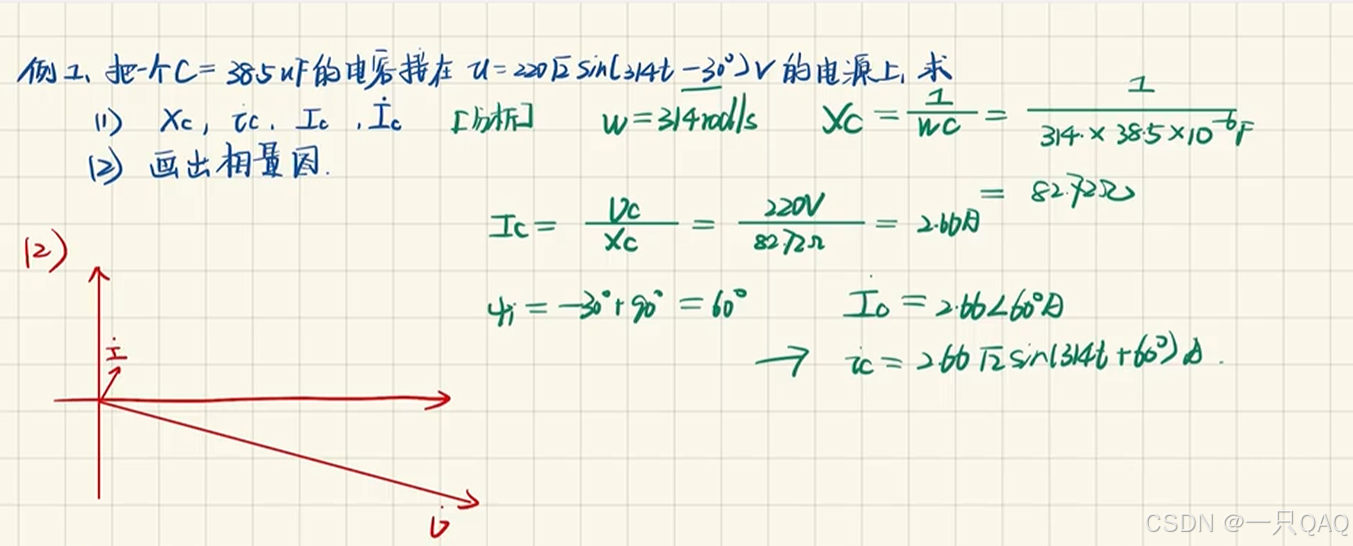 例1、把一个C=38.5uF的电容接在 u=220√2 sin(314t-30°)V 的电源上,求
(1) Xc, ic, Ic, İc
[分析] w=314rad/s Xc = 1/wC = 1/(314.×38.5×10⁻⁶F)
(2) 画出相量图.
= 82.72Ω
Ic = Uc/Xc = 220V/82.72Ω = 2.66A
(2)
ψi = -30°+90° = 60° İc = 2.66∠60°A
→ ic = 2.66√2 sin(314t+60°)A.
İ
U̇
CSDN @一只QAQ